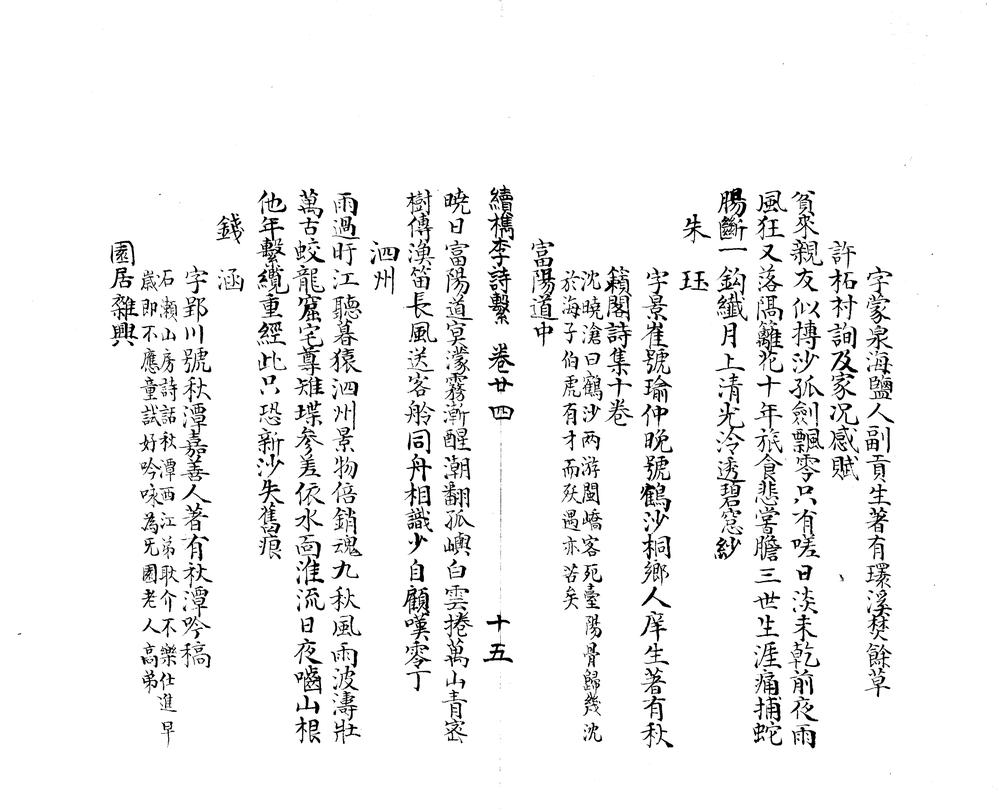 字蒙泉海鹽人副貢生著有環溪焚餘草
許柘村詢及家況感賦
貧來親友似摶沙孤劍飄零只有嗟日淡未乾前夜雨
風狂又落隔籬花十年旅食悲嘗膽三世生涯痛捕蛇
腸斷一鈎纖月上清光冷透碧窓紗
朱珏
字景崔號瑜仲晚號鶴沙桐鄉人庠生著有秋
籟閣詩集十卷
沈曉滄曰鶴沙两游閩嶠客死臺陽骨歸幾沈
於海子伯虎有才而殀遇亦苦矣
富陽道中
續檇李詩繫 卷廿四 十五
曉日富陽道溟濛霧漸醒潮翻孤嶼白雲捲萬山青密
樹傳漁笛長風送客舲同舟相識少自顧嘆零丁
泗州
雨過盱江聽暮猿泗州景物倍銷魂九秋風雨波濤壯
萬古蛟龍窟宅尊雉堞參差依水面淮流日夜嚙山根
他年繫纜重經此只恐新沙失舊痕
錢涵
字郢川號秋潭嘉善人著有秋潭吟稿
石瀨山房詩話秋潭西江弟耿介不樂仕進早
歲即不應童試好吟咏為旡圃老人高弟
園居雜興